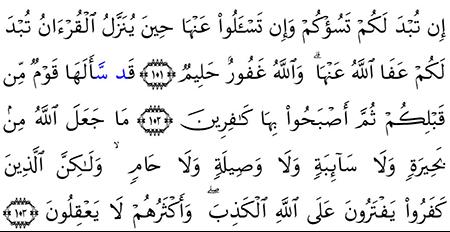 إِن تُبْدَ لَكُمْ تَسُؤْكُمْ وَإِن تَسْـَٔلُوا۟ عَنْهَا حِينَ يُنَزَّلُ ٱلْقُرْءَانُ تُبْدَ
لَكُمْ عَفَا ٱللَّهُ عَنْهَا ۗ وَٱللَّهُ غَفُورٌ حَلِيمٌ ﴿١٠١﴾ قَد سَّأَلَهَا قَوْمٌ مِّن
قَبْلِكُمْ ثُمَّ أَصْبَحُوا۟ بِهَا كَـٰفِرِينَ ﴿١٠٢﴾ مَا جَعَلَ ٱللَّهُ مِنۢ
بَحِيرَةٍ وَلَا سَآئِبَةٍ وَلَا وَصِيلَةٍ وَلَا حَامٍ ۙ وَلَـٰكِنَّ ٱلَّذِينَ
كَفَرُوا۟ يَفْتَرُونَ عَلَى ٱللَّهِ ٱلْكَذِبَ ۖ وَأَكْثَرُهُمْ لَا يَعْقِلُونَ ﴿١٠٣﴾